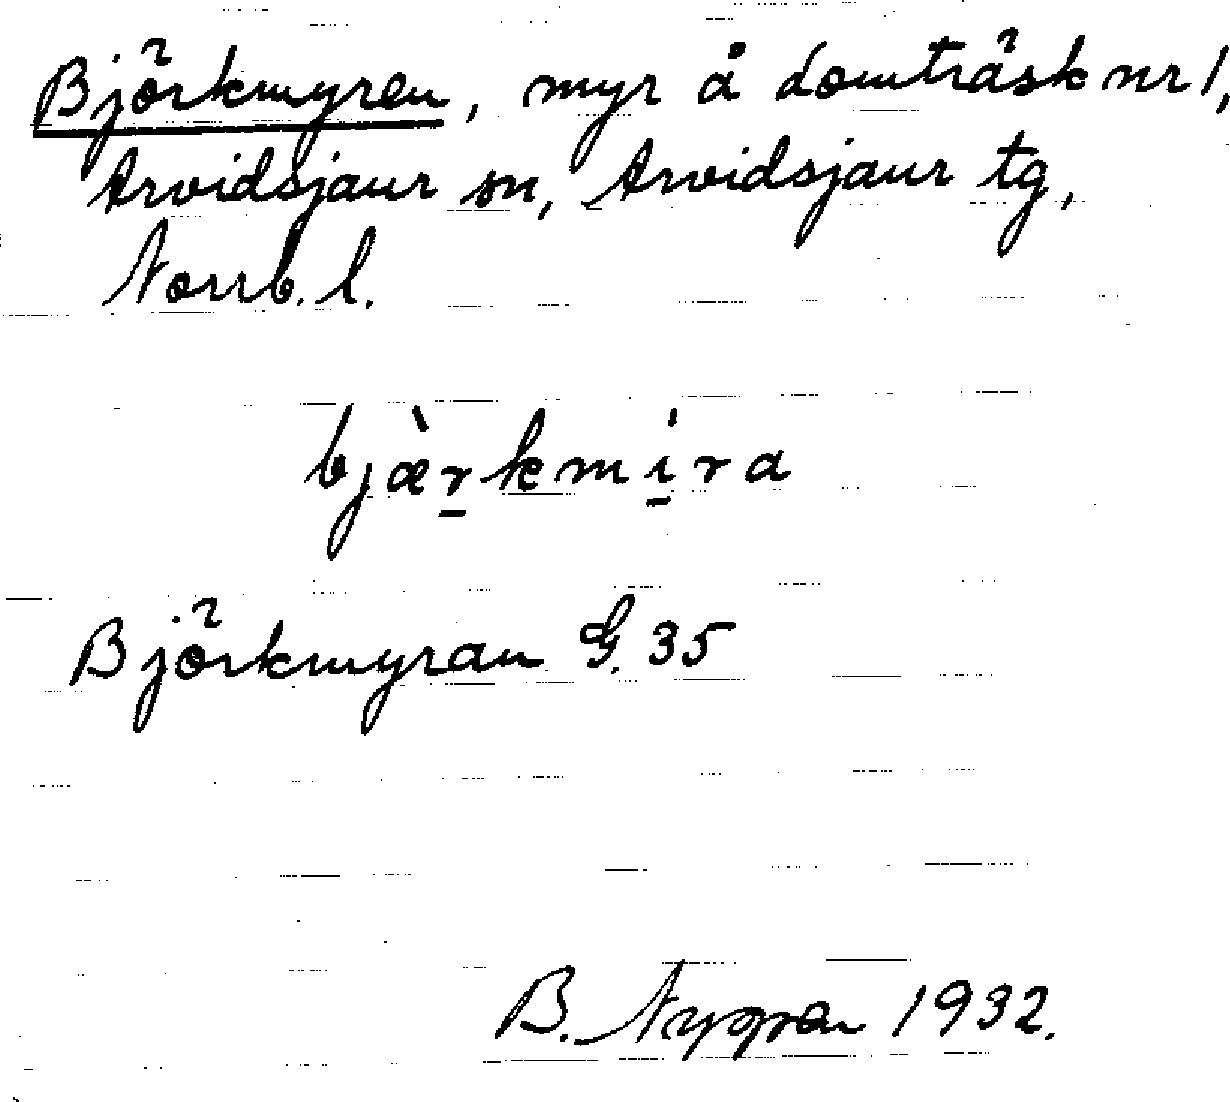 Björkmyren, myr å Domträsk nr 1,
Arvidsjaur sn, Arvidsjaur tg,
Norrb. l.
bjæ̀r̠kmi̠ra
Björkmyran G. 35
B. 1932.